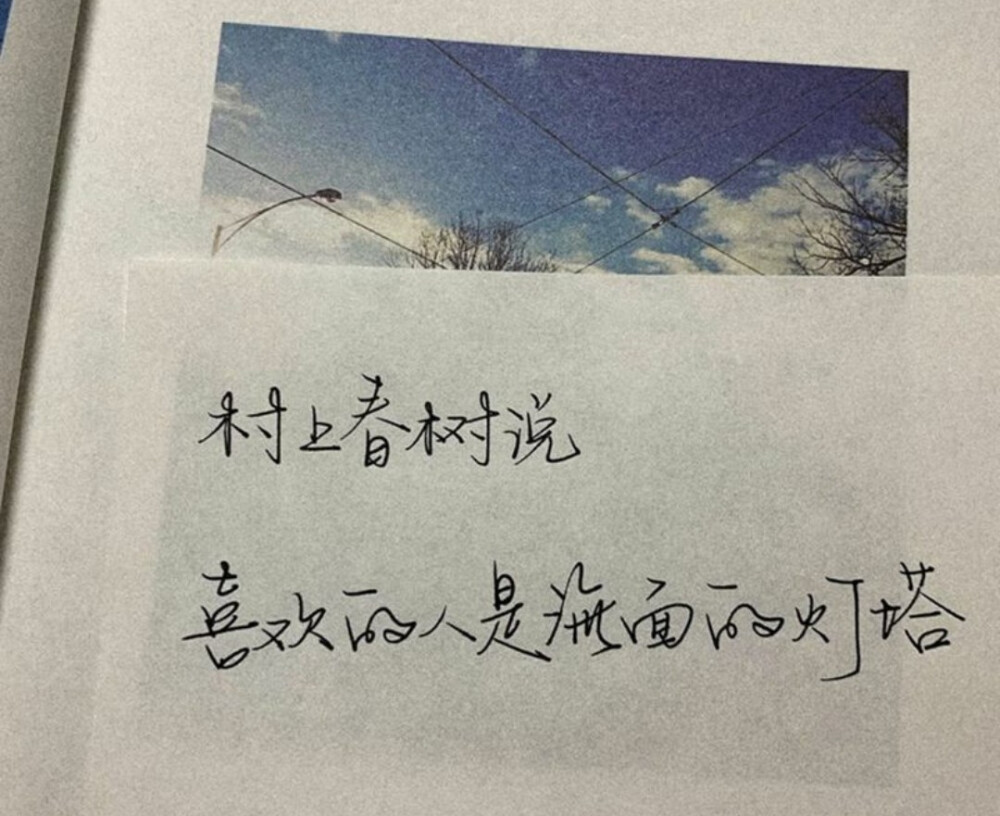 村上春树说
喜欢的人是海面的灯塔